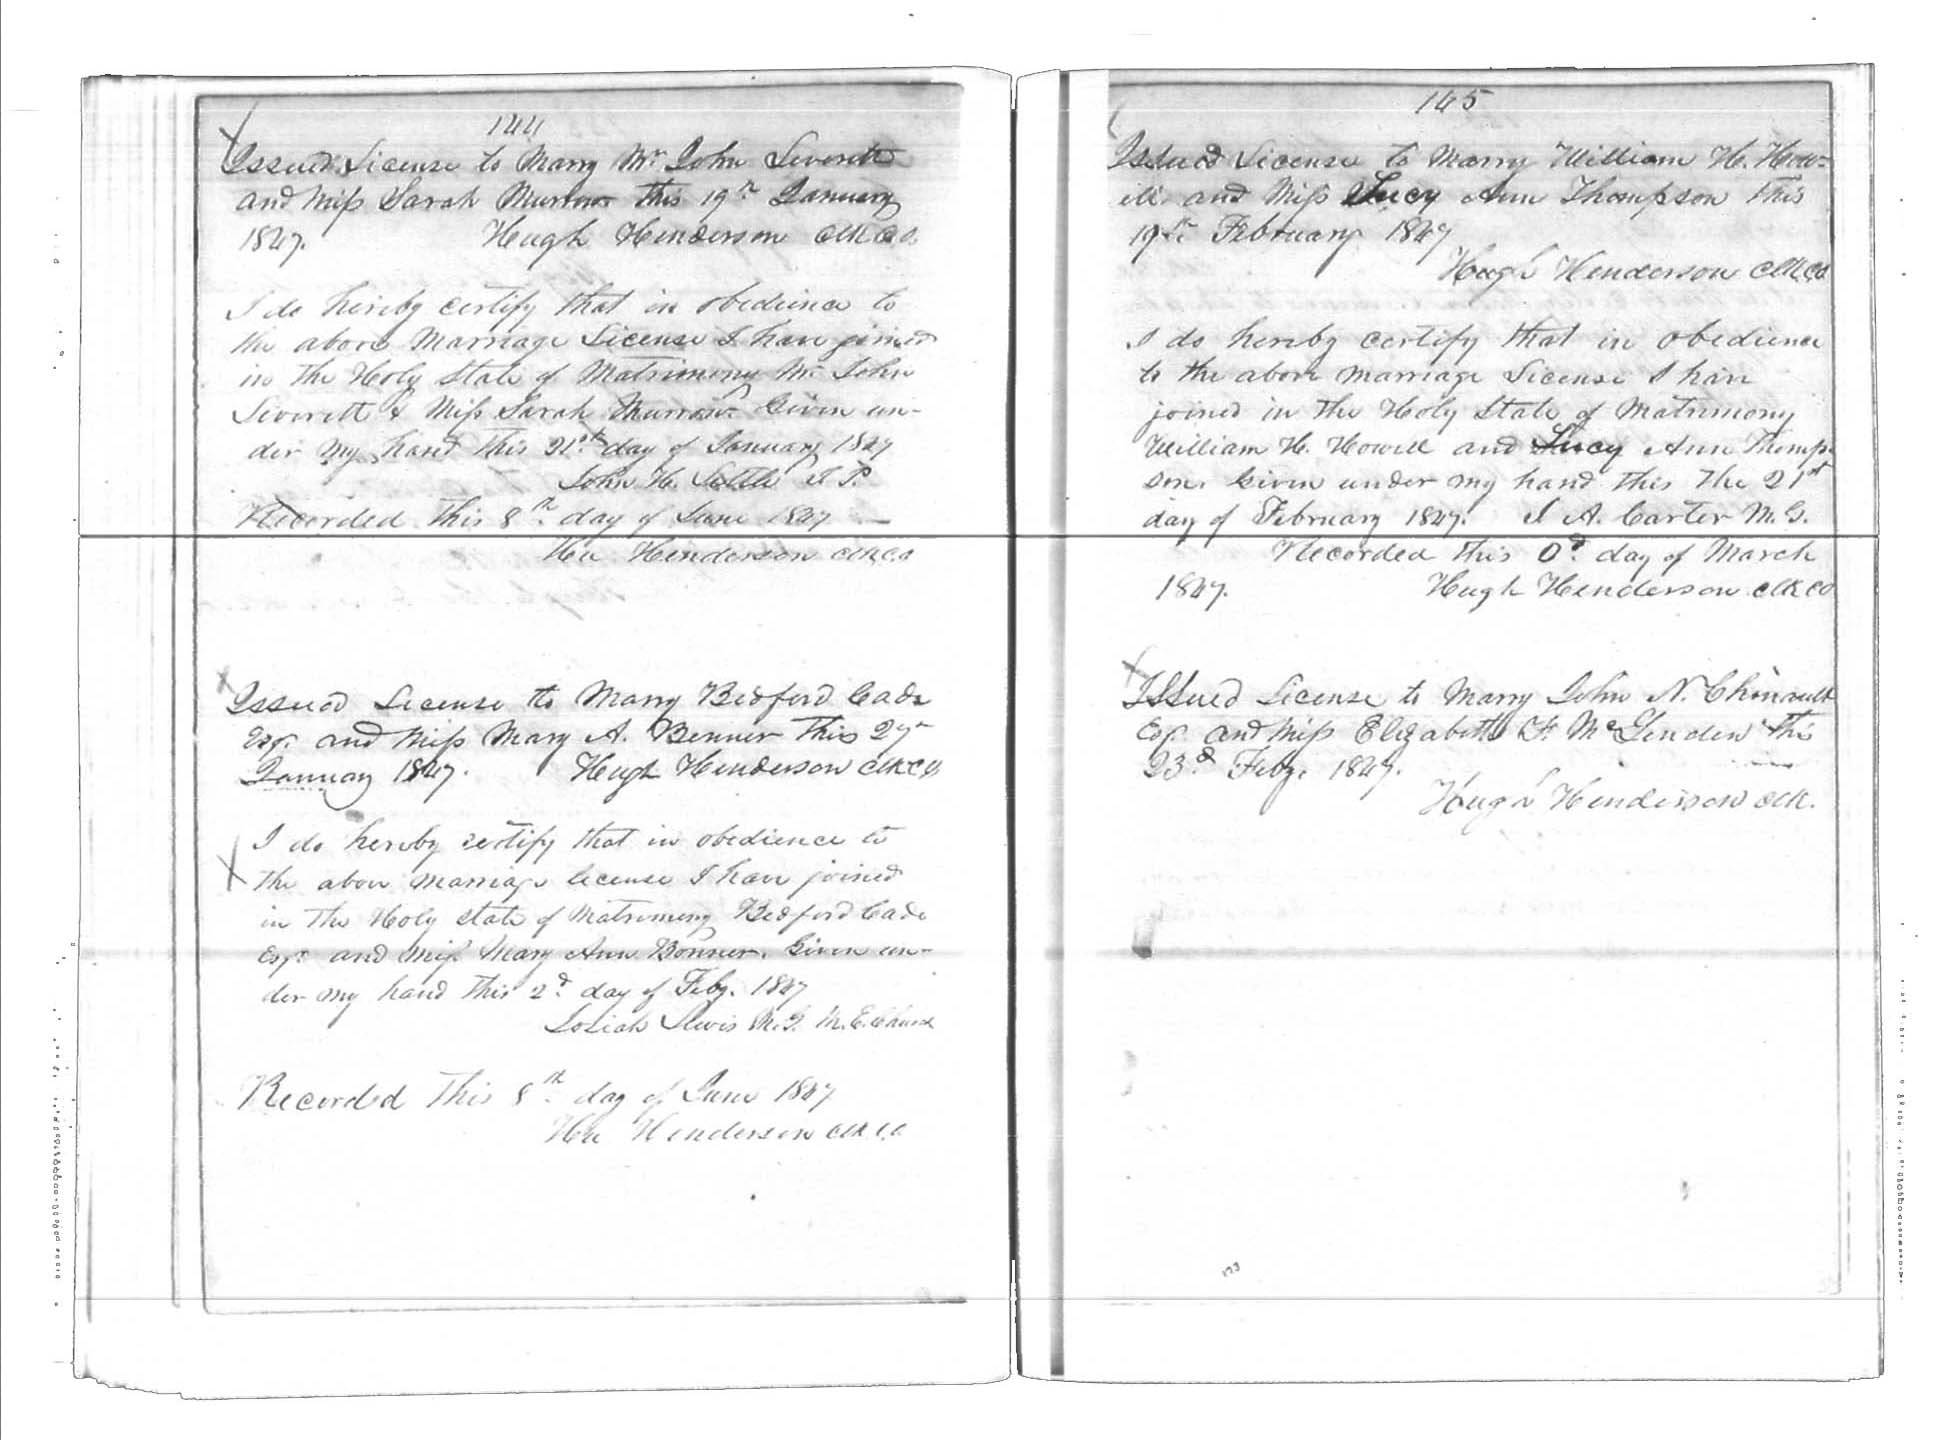 144
Issued License to Marry Mr. John Leverett
and Miss Sarah Murrow this 19th January
1847. Hugh Henderson Clk CC
I do hereby certify that in obedience to
the above Marriage License I have joined
in the Holy State of Matrimony Mr. John
Leverett & Miss Sarah Murrow Given un-
der my hand this 21st day of January 1847
John H. Settle J. P.
Recorded this 8th day of June 1847
Hu Henderson Clk CC
Issued License to Marry Bedford Cade
Esqr. and Miss Mary A. Bonner this 27th
January 1847. Hugh Henderson Clk CC
I do hereby certify that in obedience to
the above Marriage license I have joined
in the Holy State of Matrimony Bedford Cade
Esqr. and Miss Mary Ann Bonner. Given un-
der my hand this 2d. day of Feby. 1847
Josiah Lewis M.G. M.E. Church
Recorded this 8th day of June 1847
Hu Henderson Clk CC
145
Issued License to Marry William H. How-
ell and Miss Lucy Ann Thompson this
19th February 1847
Hugh Henderson Clk CC
I do hereby certify that in obedience
to the above marriage License I have
joined in the Holy State of Matrimony
William H. Howell and Lucy Ann Thomp-
son. Given under my hand this the 21st
day of February 1847. J A. Carter M.G.
Recorded this day of March
1847. Hugh Henderson Clk CC
Issued License to Marry John N. Chenault
Esqr. and Miss Elizabeth F. McLenden this
23d Feby. 1847.
Hugh Henderson Clk.